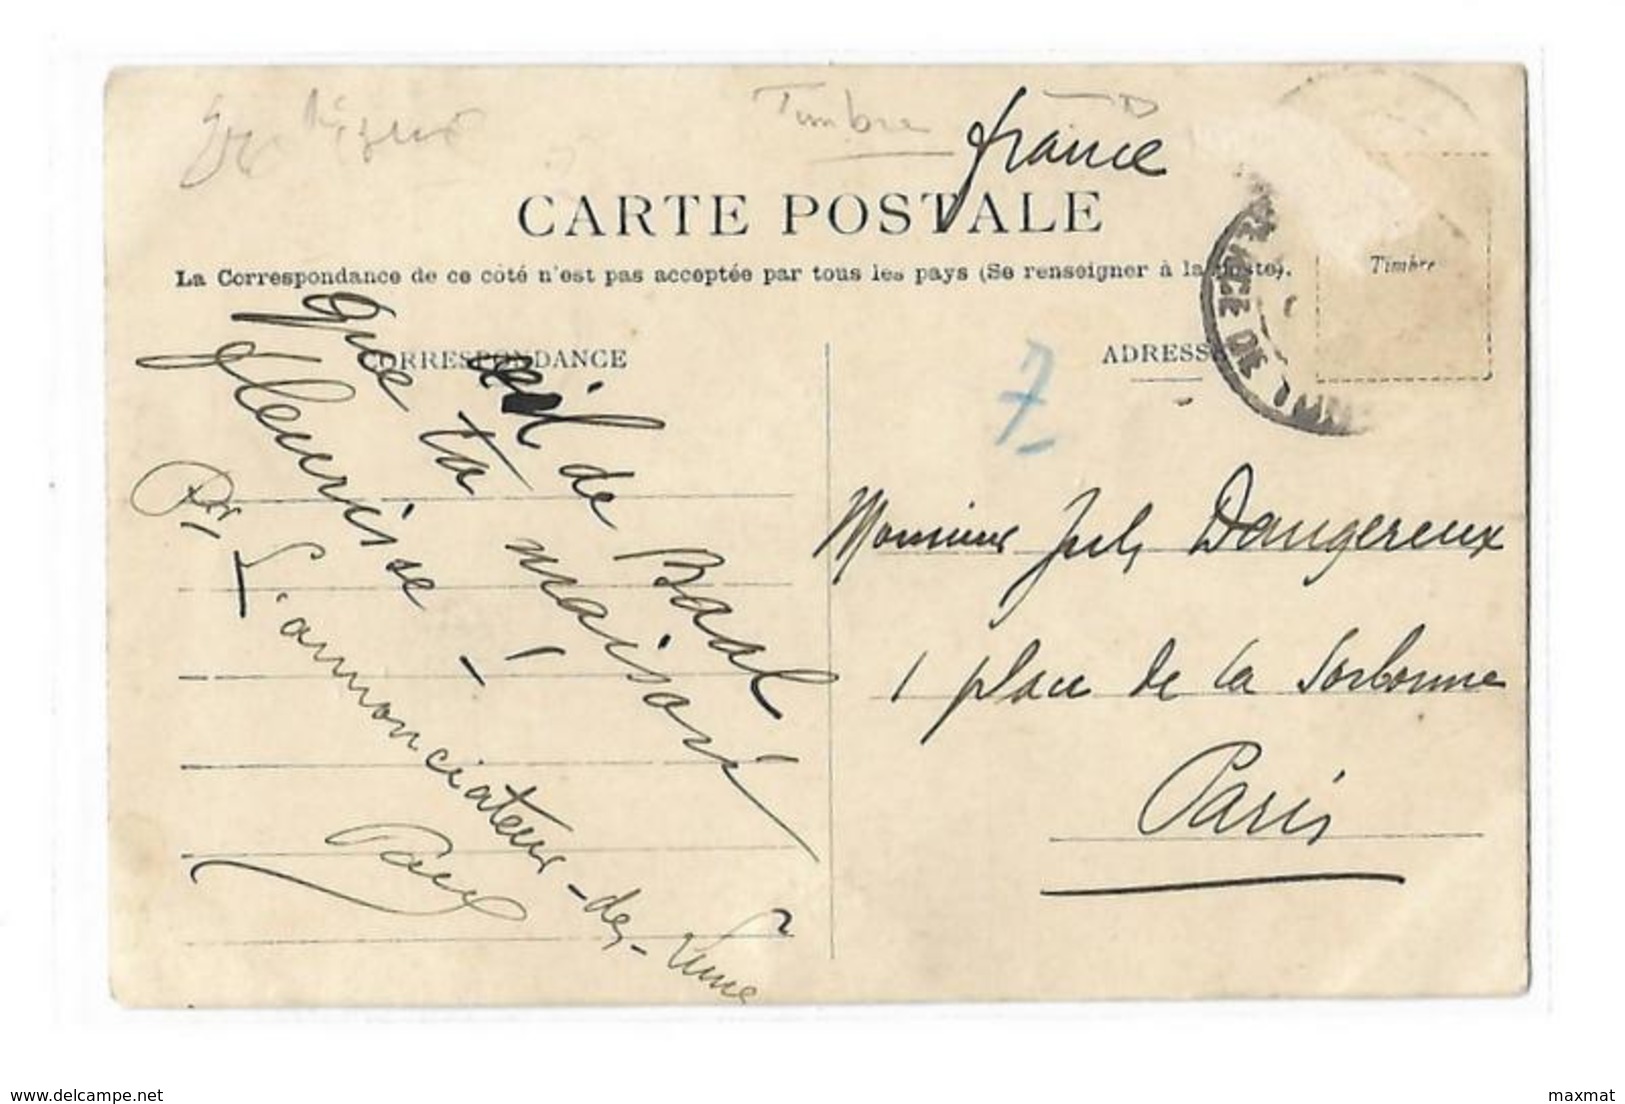 Timbre
france
CARTE POSTALE
La Correspondance de ce côté n'est pas acceptée par tous les pays (Se renseigner à la poste).
Timbre
CORRESPONDANCE
ADRESSE
7
œil de Baal
Que ta maison
fleurisse
Pr L'annonciateur-des-
Monsieur Jules Dangereux
1 place de la Sorbonne
Paris
www.delcampe.net
maxmat